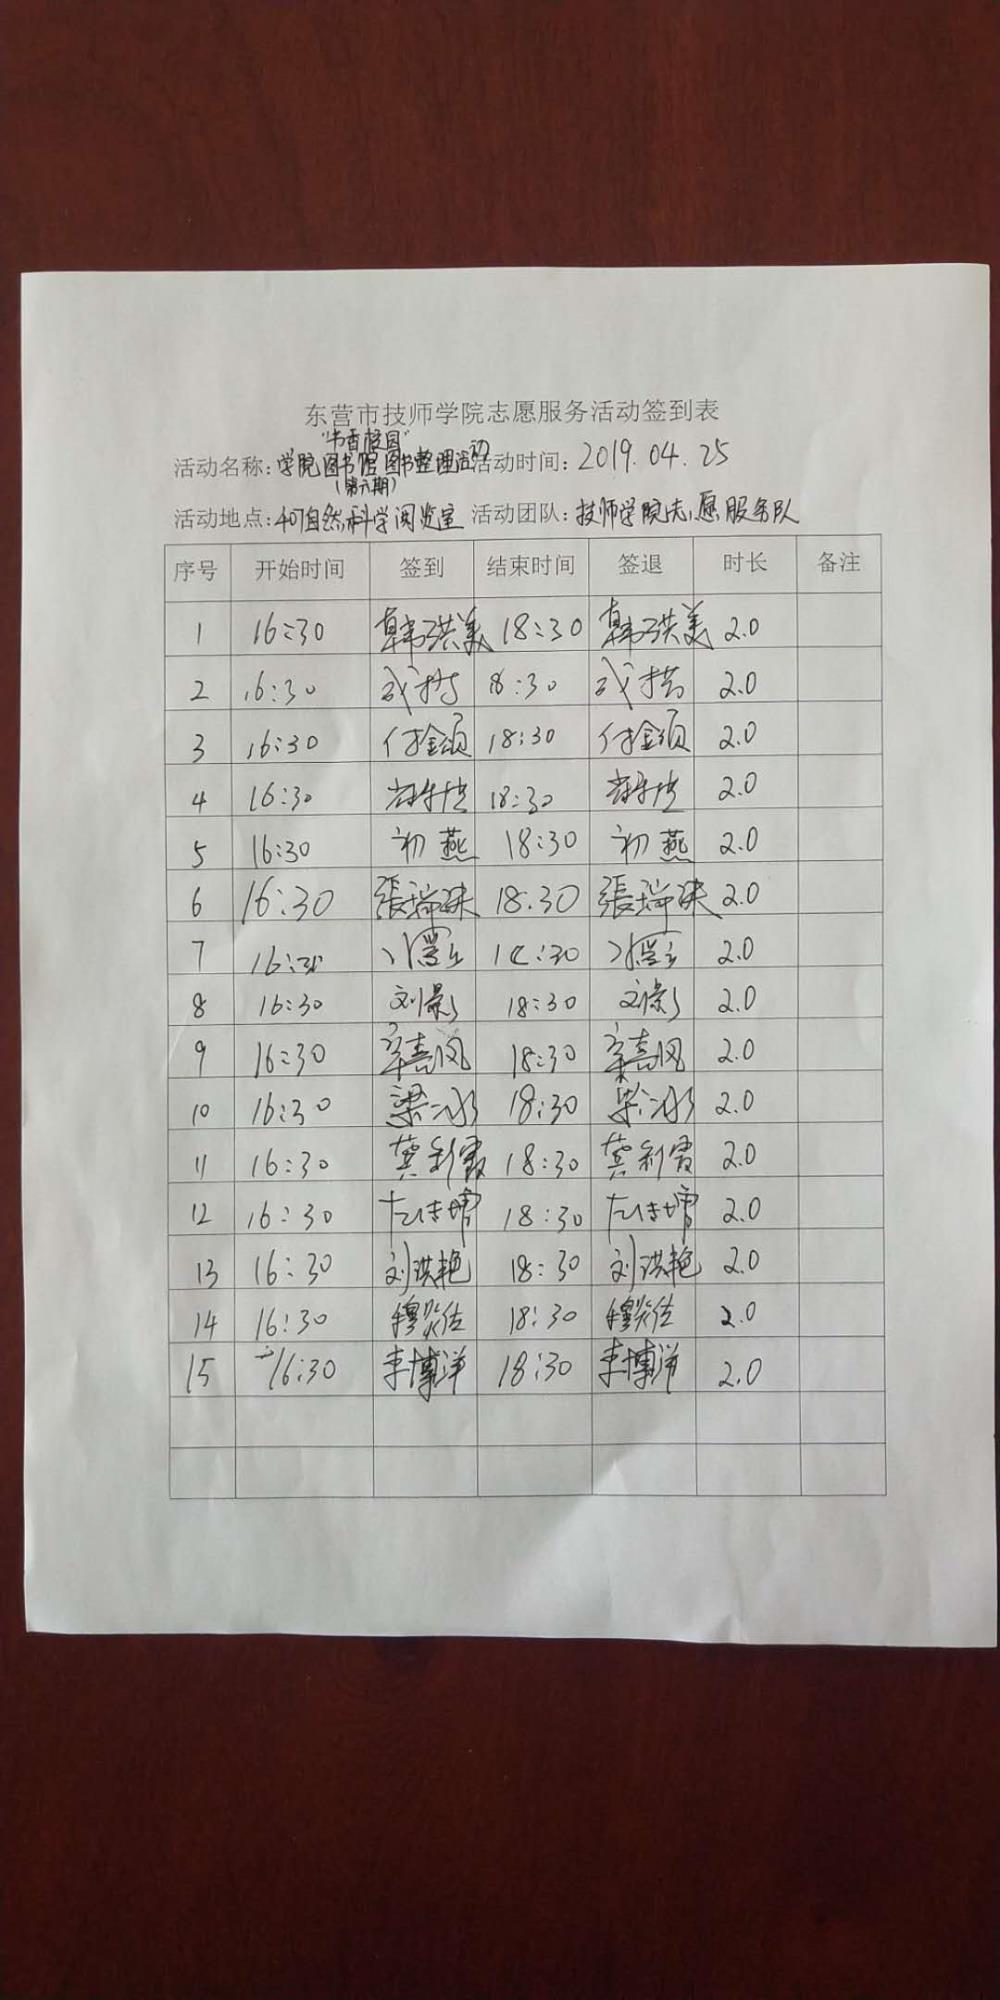 东营市技师学院志愿服务活动签到表
"书香校园"
活动名称:学院图书馆图书整理活动 活动时间:2019.04.25
(第六期)
活动地点:自然科学阅览室 活动团队:技师学院志愿服务队
序号 开始时间 签到 结束时间 签退 时长 备注
1 16:30 韩洪美 18:30 韩洪美 2.0
2 16:30 18:30 2.0
3 16:30 付金颂 18:30 付金颂 2.0
4 16:30 18:30 2.0
5 16:30 初燕 18:30 初燕 2.0
6 16:30 張瑞瑛 18:30 張瑞瑛 2.0
7 16:30 18:30 2.0
8 16:30 刘影 18:30 刘影 2.0
9 16:30 辛喜风 18:30 辛喜风 2.0
10 16:30 梁冰 18:30 梁冰 2.0
11 16:30 龚利霞 18:30 龚利霞 2.0
12 16:30 18:30 2.0
13 16:30 刘洪艳 18:30 刘洪艳 2.0
14 16:30 18:30 2.0
15 16:30 李博洋 18:30 李博洋 2.0